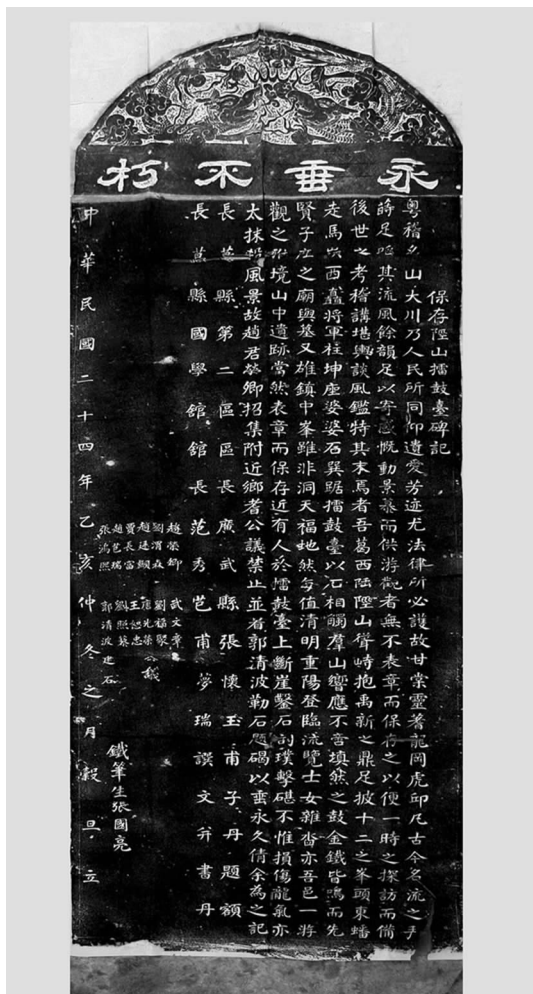 永垂不朽
保存陘山擂鼓臺碑記
粤稽名山大川乃人民所同仰遺愛芳迹尤法律所必護故甘棠靈著龍岡虎邱凡古今名流之
蒔足跡其流風餘韻足以寄感慨動景慕而供游觀者無不表章而保存之以便一時之探訪而備
後世之考稽講堪輿談風鑑特其末焉者吾葛西陸陘山聳峙抱禹新之鼎足披十二之峯頭東蟠
走馬 西矗將軍柱坤座婆婆石巽踞擂鼓臺以石相觸羣山響應不啻填然之鼓金鐵皆鳴而先
賢子產之廟與墓又雄鎮中峯雖非洞天福地然每值清明重陽登臨流覽士女雜沓亦吾邑一將
觀之 境山中遺跡當然表章而保存近有人於擂鼓臺上斷崖鑿石剖璞擊碪不惟損傷龍氣亦
太抹 風景故趙君榮卿招集附近鄉耆公議禁止並着郭清波勒石題碣以垂永久倩余為之記
長葛縣第二區區長廣武縣張懷玉甫子丹題額
長葛縣國學舘舘長范秀芭甫夢瑞譔文弁書丹
趙榮卿 劉渭森 趙廷顯 賈長富 趙芭瑞 張鴻照
武文章 劉福聚 唐先榮 王恕忠 劉照藜 郭清波 建石
鐵筆生張國亮
中華民國二十四年乙亥仲冬之月穀旦立